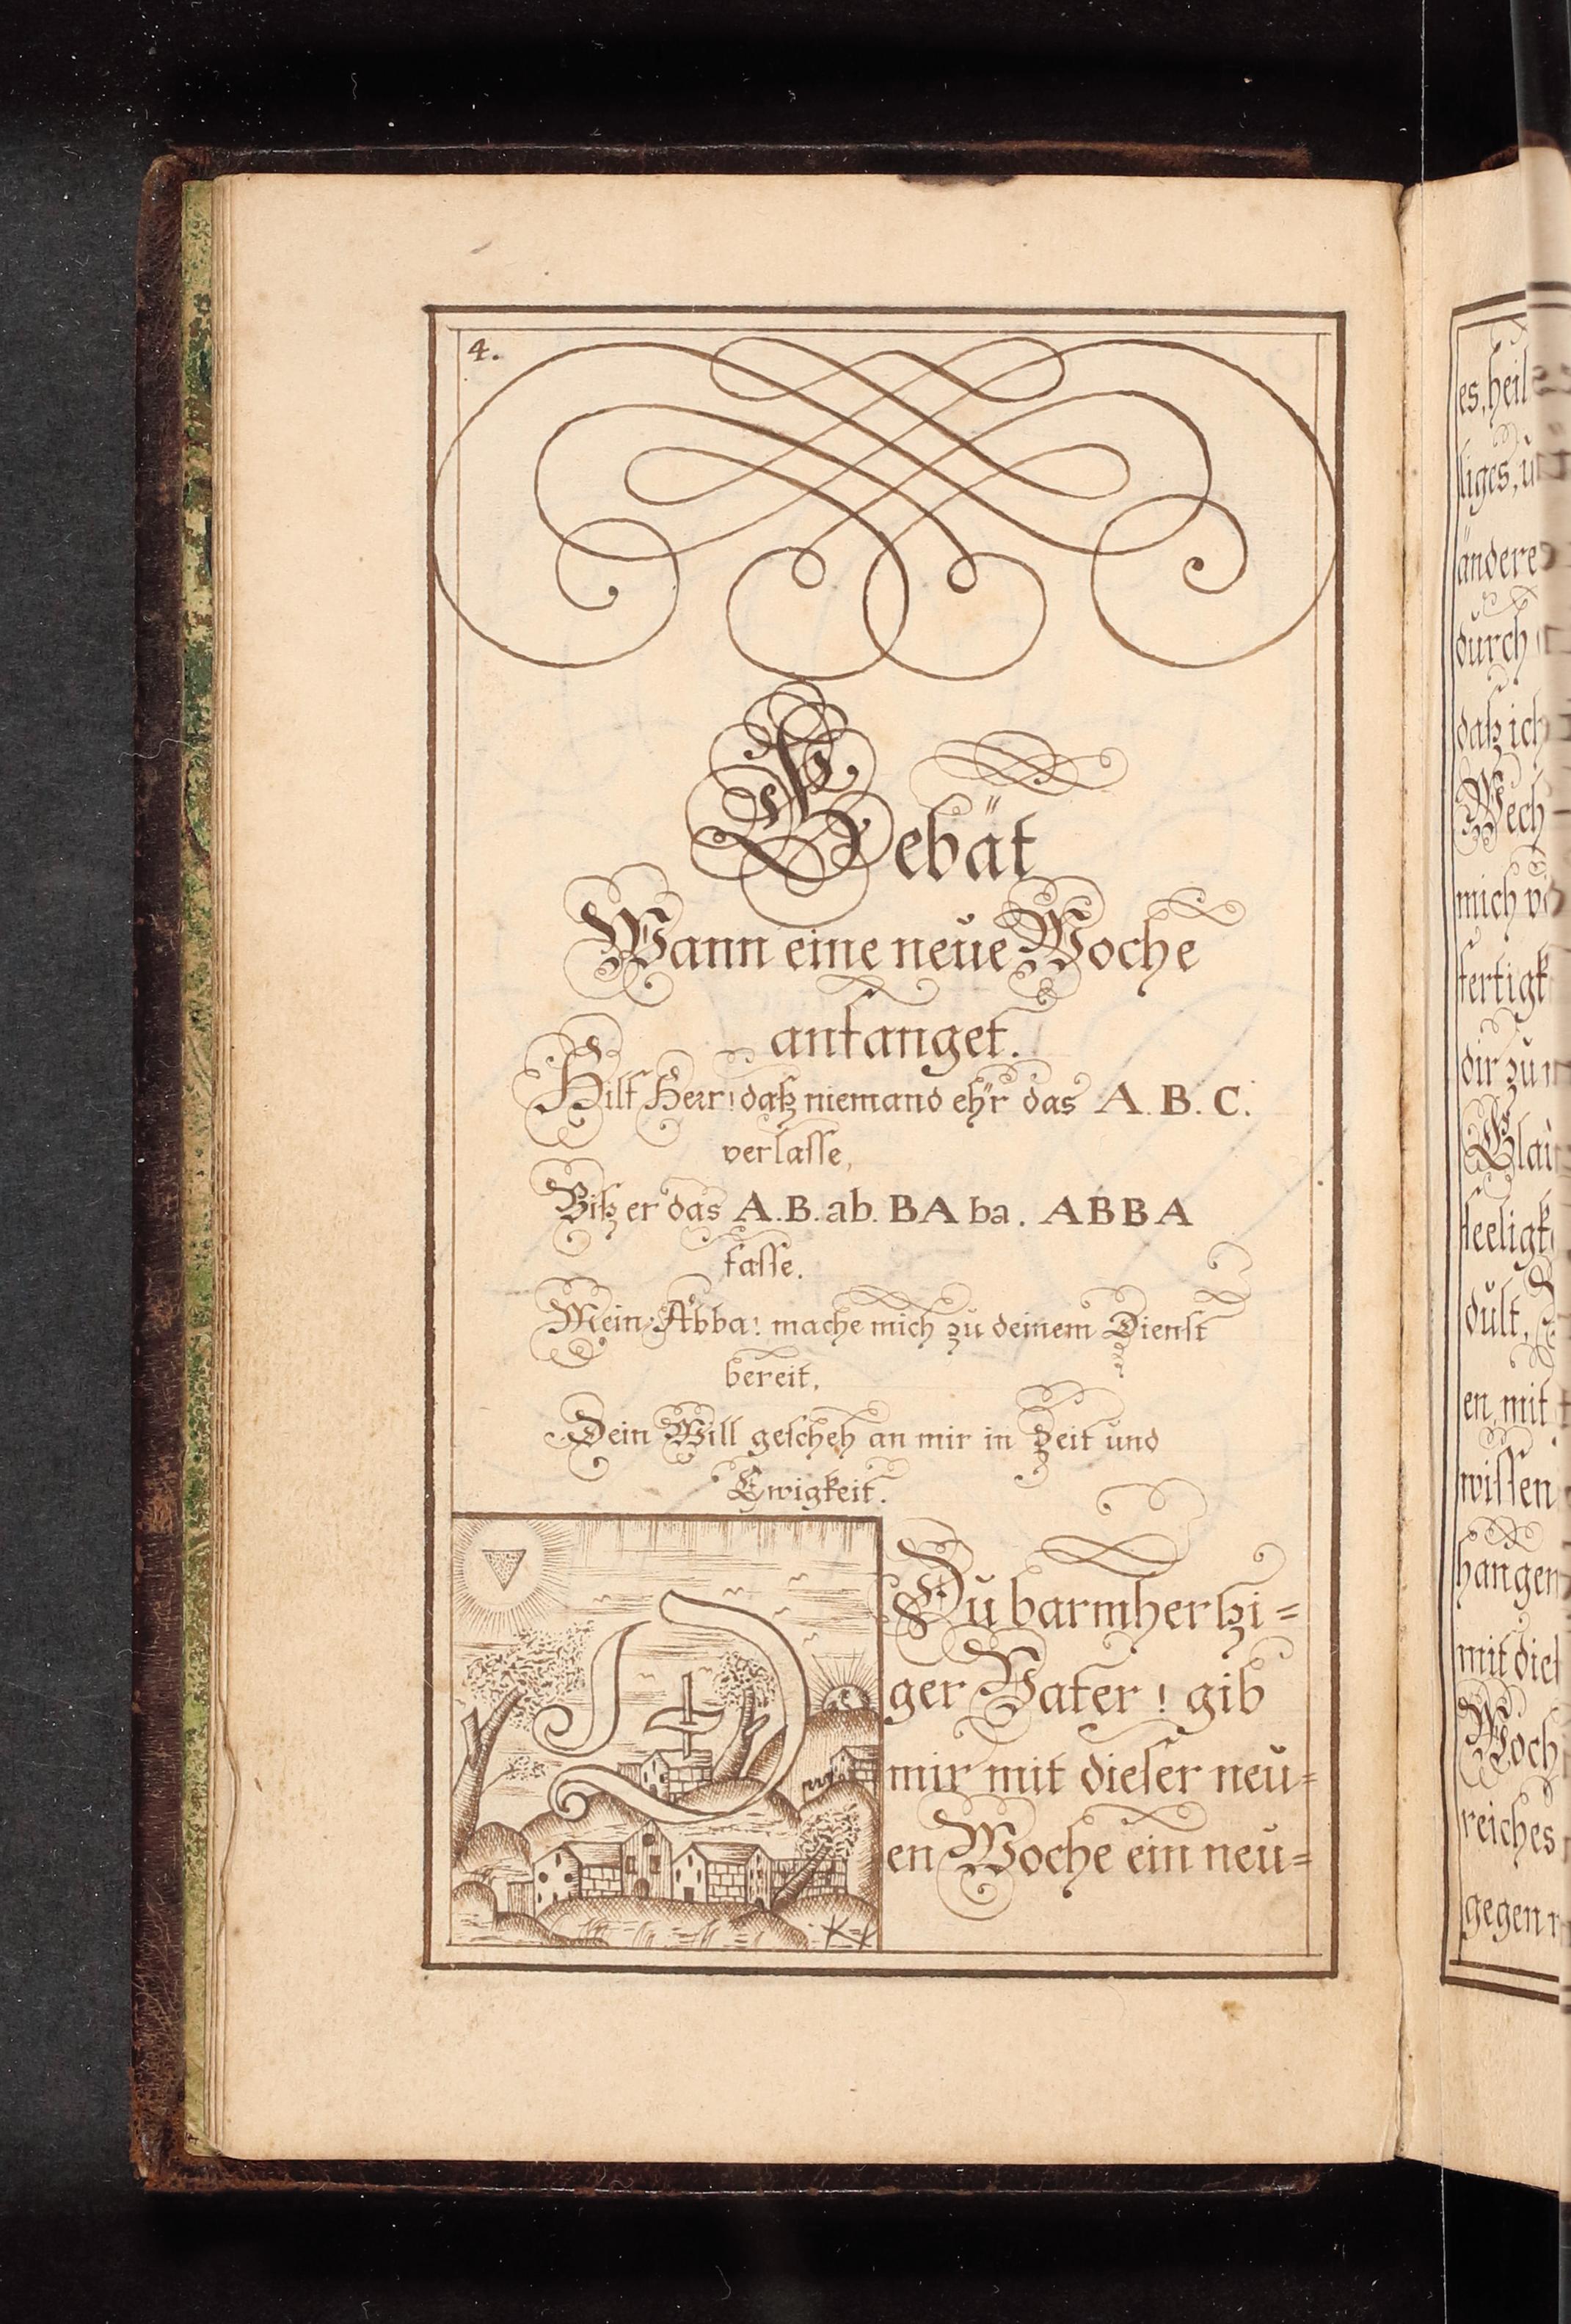 4.
Gebät
Wann eine neue Woche
anfanget.
Hilf Herr! daß niemand ehr das A. B. C.
verlasse,
Biß er das A. B. ab. BA ba. ABBA
fasse.
Mein Abba! mache mich zu deinem Dienst
bereit,
Dein Will gescheh an mir in Zeit und
Ewigkeit.
Du barmhertzi=
ger Vater! gib
mir mit dieser neu=
en Woche ein neu=
es, heil
liges, u
andere
durch
daß ich
Wech
mich vo
fertigk
dir zu
Glau
seeligk
dult,
en, mit
wissen
hangen
mit dies
Woch
reiches
gegen